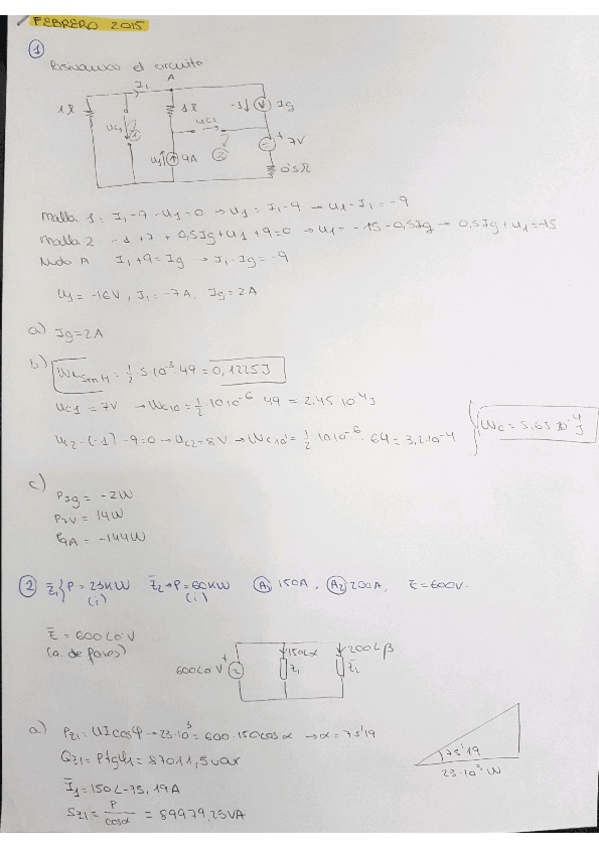 FEBRERO 2015
①
el circuito
I₁
A
1Ω
1Ω
-1↓
Ig
7V
9A
0'5Ω
Malla 1: I₁-9-U₁=0 → U₁=I₁-9 → U₁-I₁=-9
Malla 2 -1+7+0,5Ig+U₁+9=0 → U₁=-15-0,5Ig → 0,5Ig+U₁=-15
Nudo A I₁+9=Ig → I₁-Ig=-9
U₁=-16V, I₁=-7A, Ig=2A
a) Ig=2A
b) = ½ 5 10⁻³ 49 = 0,1225J
Uc1 = 7V → = ½ · 10 10⁻⁶ 49 = 2,45 10⁻⁴J
Uc2-(-1)-9=0 → Uc2=8V → = ½ · 10 10⁻⁶ · 64 = 3,2·10⁻⁴
Wc = 5,65 10⁻⁴ J
c)
PIg = -2W
P7V = 14W
P9A = -144W
② Z̄₁ } P=23KW (i) Z̄₂ → P=60KW (i) A₁ 150A, A₂ 200A, E=600V.
Ē = 600∠0°V
(o. de fases)
600∠0°V
150∠α
Z₁
200∠β
Z̄₂
a) PZ1 = UIcosφ → 23·10³ = 600·150cosα → α=75'19
QZ1 = Ptgφ₁ = 87011,5 var
Ī₁ = 150∠-75,19A
SZ1 = P/cosα = 89979,25VA
75'19
23·10³ W